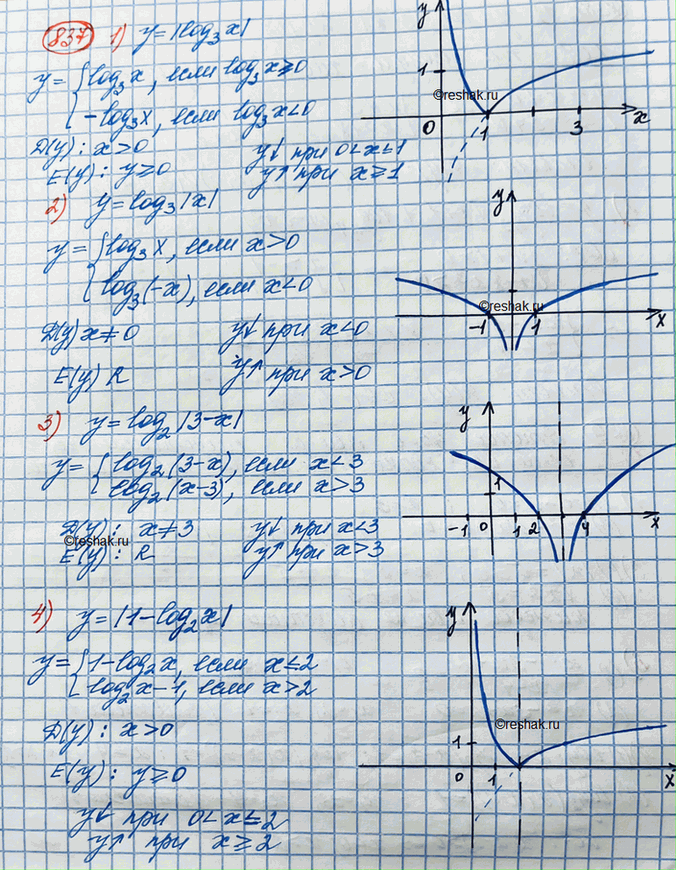 837 1) y = |log₃x|
y = { log₃x, если log₃x ≥ 0
{ -log₃x, если log₃x < 0
D(y): x > 0
E(y): y ≥ 0
y↓ при 0 < x ≤ 1
y↑ при x ≥ 1
y
1
0
1
3
x
©reshak.ru
2) y = log₃|x|
y = { log₃x, если x > 0
{ log₃(-x), если x < 0
D(y) x ≠ 0
E(y) R
y↓ при x < 0
y↑ при x > 0
y
-1
1
x
©reshak.ru
3) y = log₂|3-x|
y = { log₂(3-x), если x < 3
{ log₂(x-3), если x > 3
D(y): x ≠ 3
E(y): R
y↓ при x < 3
y↑ при x > 3
©reshak.ru
y
1
-1 0 1 2 4 x
4) y = |1-log₂x|
y = { 1-log₂x, если x ≤ 2
{ log₂x-1, если x > 2
D(y): x > 0
E(y): y ≥ 0
y↓ при 0 < x ≤ 2
y↑ при x ≥ 2
y
1
0 1
x
©reshak.ru